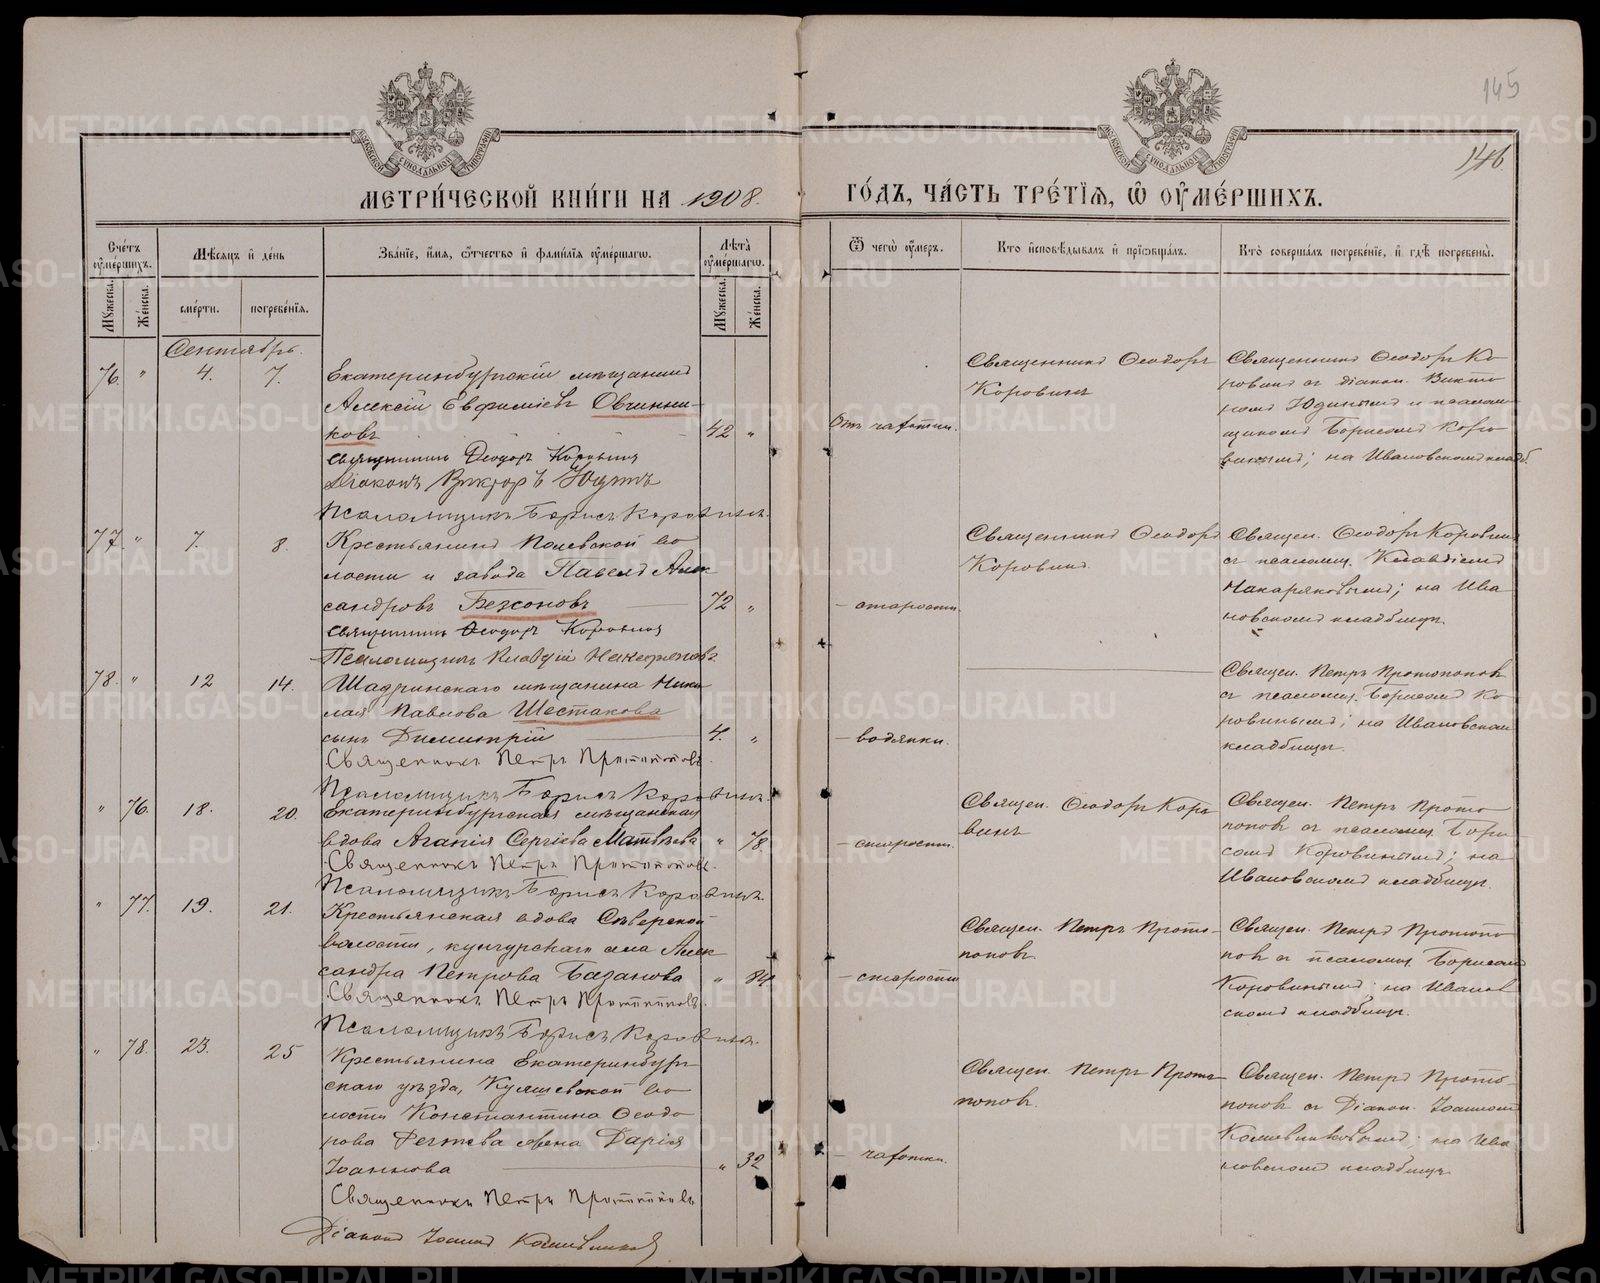 145
146
МЕТРИ́ЧЕСКОЙ КНИ́ГИ НА 1908.
ГО́ДЪ, ЧА́СТЬ ТРЕ́ТІѦ, Ѽ ОУ҆МЕ́РШИХЪ.
Сче́тъ оу҆ме́ршихъ.
Мѣ́сяцъ и҆ де́нь
Зва́нїе, и҆́мя, ѻ҆́тчество и҆ фами́лїя оу҆ме́ршагѡ.
Лѣ́та оу҆ме́ршагѡ.
Ѿ чегѡ̀ оу҆́меръ.
Кто̀ и҆сповѣ́дывалъ и҆ прїѡбща́лъ.
Кто̀ соверша́лъ погребе́нїе, и҆ гдѣ̀ погребены̀.
Му́жеска.
Же́нска.
сме́рти.
погребе́нїя.
Му́жеска.
Же́нска.
Сентябрь.
76. " 4. 7.
Екатеринбургскій мѣщанинъ
Алексій Евфиміевъ Овчинни-
ковъ 42 "
Священникъ Ѳеодоръ Коровинъ
Діаконъ Викторъ Юдинъ
Псаломщикъ Борисъ Коровинъ.
Отъ чахотки.
Священникъ Ѳеодоръ
Коровинъ
Священникъ Ѳеодоръ Ко
ровинъ съ діакон. Викто
ромъ Юдинымъ и псалом
щикомъ Борисомъ Коро
винымъ; на Ивановскомъ кладб.
77 " 7. 8.
Крестьянинъ Полевской во
лости и завода Павелъ Алек
сандровъ Безсоновъ 72 "
Священникъ Ѳеодоръ Коровинъ
Псаломщикъ Клавдій
– старости.
Священникъ Ѳеодоръ
Коровинъ.
Священ. Ѳеодоръ Коровинъ
съ псаломщ. Клавдіемъ
на Ива
новскомъ кладбищѣ.
78. " 12 14.
Шадринскаго мѣщанина Нико
лая Павлова Шестакова
сынъ Димитрій 4. "
Священникъ Петръ Протопоповъ.
Псаломщикъ Борисъ Коровинъ.
– водянки.
Священ. Петръ Протопоповъ
съ псаломщ. Борисомъ Ко
ровинымъ; на Ивановскомъ
кладбищѣ.
" 76. 18. 20.
Екатеринбургская мѣщанская
вдова Агапія Сергіева Матвѣева " 78.
Священникъ Петръ Протопоповъ.
Псаломщикъ Борисъ Коровинъ.
– старости.
Священ. Ѳеодоръ Коро
винъ
Священ. Петръ Прото
поповъ съ псаломщ. Бори
сомъ Коровинымъ; на
Ивановскомъ кладбищѣ.
" 77. 19. 21.
Крестьянская вдова
волости, села Алек
сандра Петрова Базанова " 84
Священникъ Петръ Протопоповъ.
Псаломщикъ Борисъ Коровинъ.
– старости
Священ. Петръ Прото-
поповъ.
Священ. Петръ Протопо
повъ съ псаломщ. Борисомъ
Коровинымъ; на Иванов
скомъ кладбищѣ.
" 78. 23. 25
Крестьянина Екатеринбург
скаго уѣзда, во
лости Константина Ѳеодо
рова жена Дарія
Іоаннова " 32
Священникъ Петръ Протопоповъ
Діаконъ Іоаннъ
– чахотки.
Священ. Петръ Прото-
поповъ.
Священ. Петръ Прото-
поповъ съ Діакон. Іоанномъ
на Ива
новскомъ кладбищѣ
METRIKI.GASO-URAL.RU